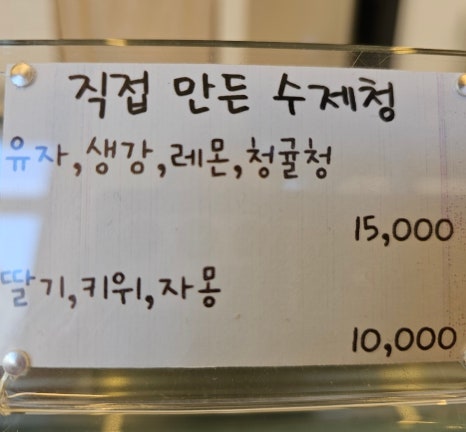 직접 만든 수제청
유자,생강,레몬,청귤청
15,000
딸기,키위,자몽
10,000